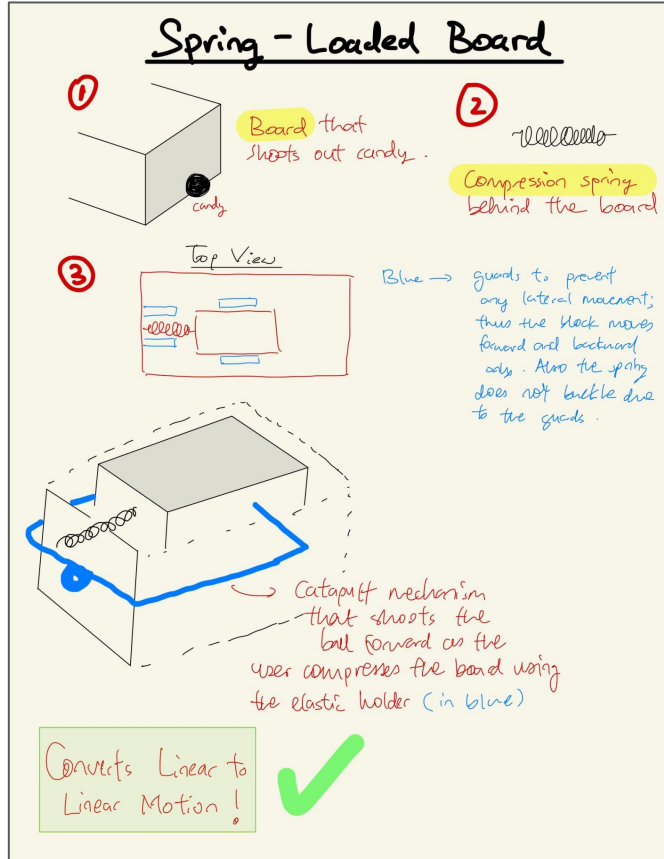 Spring - Loaded Board
①
Board that
shoots out candy.
candy
②
Compression spring
behind the board
③
Top View
Blue → guards to prevent
any lateral movement;
thus the block moves
forward and backward
only. Also the spring
does not buckle due
to the guards.
Catapult mechanism
that shoots the
ball forward as the
user compresses the board using
the elastic holder (in blue)
Converts Linear to
Linear Motion!